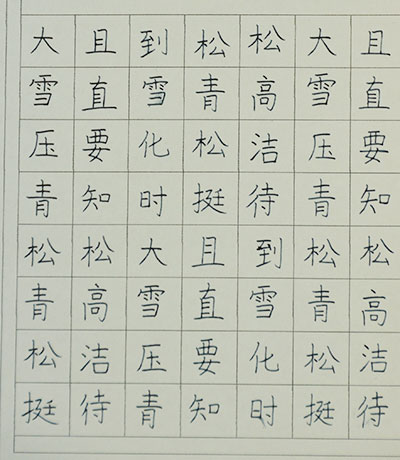 大雪压青松青松挺
且直要知松高洁待
到雪化时大雪压青
松青松挺且直要知
松高洁待到雪化时
大雪压青松青松挺
且直要知松高洁待